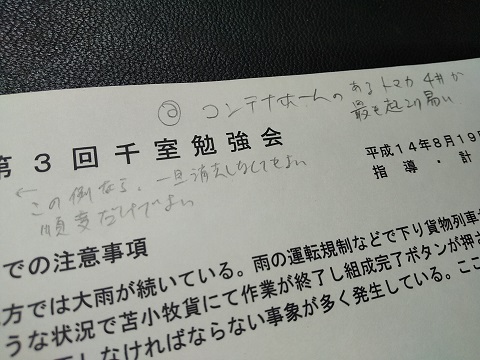 ◎ コンテナホームの あるトマカ 4番が
最も起こり易い
第３回千室勉強会
平成１４年８月１９
指導・計
← この例なら、一旦消去しなくてもよい
順変だけでよい
での注意事項
方では大雨が続いている。雨の運転規制などで下り貨物列車
うな状況で苫小牧貨にて作業が終了し組成完了ボタンが押さ
しなければならない事象が多く発生している。ここ